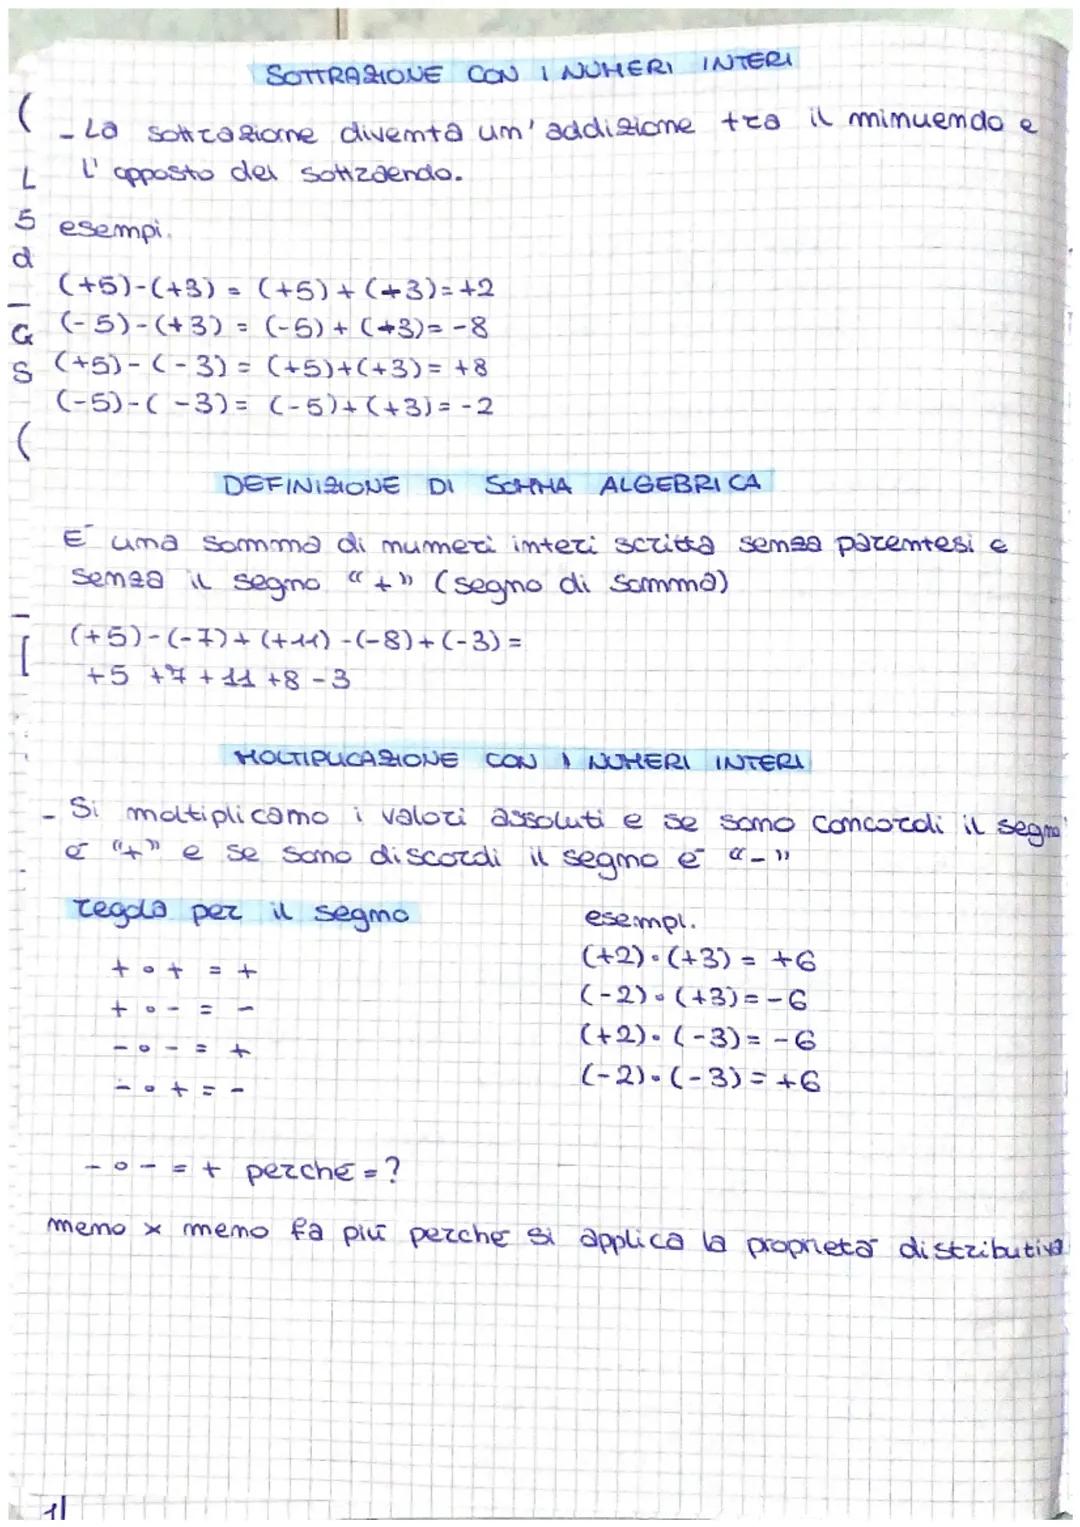 SOTTRAZIONE CON I NUMERI INTERI
- La sottrazione diventa un' addizione tra il minuendo e
l' opposto del sottraendo.
esempi.
(+5)-(+3) = (+5)+(-3)=+2
(-5)-(+3) = (-5)+(-3)=-8
(+5)-(-3) = (+5)+(+3)= +8
(-5)-(-3)= (-5)+(+3)=-2
DEFINIZIONE DI SOMMA ALGEBRICA
E' una somma di numeri interi scritta senza parentesi e
senza il segno "+" (segno di somma)
(+5)-(-7)+(+11)-(-8)+(-3)=
+5 +7 +11 +8 -3
MOLTIPLICAZIONE CON I NUMERI INTERI
- Si moltiplicamo i valori assoluti e se sono concordi il segno
é "+" e se sono discordi il segno é "-"
regola per il segno
+ • + = +
+ • - = -
- • - = +
- • + = -
esempi.
(+2)•(+3) = +6
(-2)•(+3)=-6
(+2)•(-3)= -6
(-2)•(-3)= +6
- • - = + perché =?
meno x meno fa più perche si applica la proprietà distributiva
(
L
5
d
G
S
(
[
1|